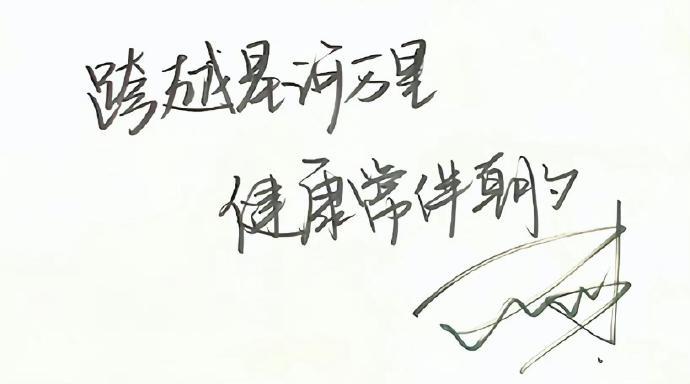 跨越星河万里
健康常伴朝夕